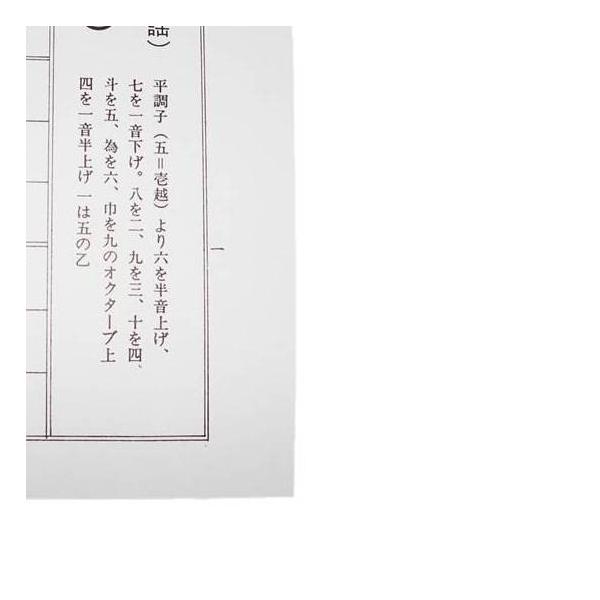 謡）
平調子（五＝壱越）より六を半音上げ、
七を一音下げ。八を二、九を三、十を四、
斗を五、為を六、巾を九のオクターブ上
四を一音半上げ 一は五の乙
一